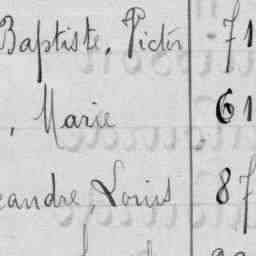 Baptiste, Victor 71
, Marie 61
eandre, Louis 87